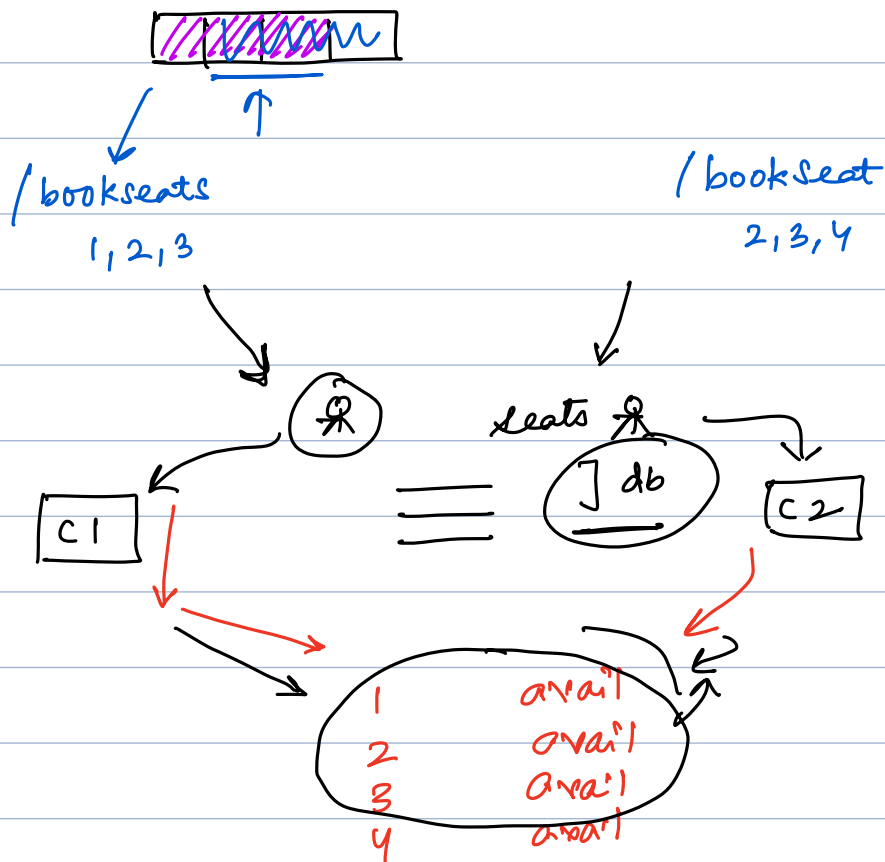 /bookseats /bookseat
1,2,3 2,3,4
seats
] db
C1 C2
1 avail
2 avail
3 avail
4 avail